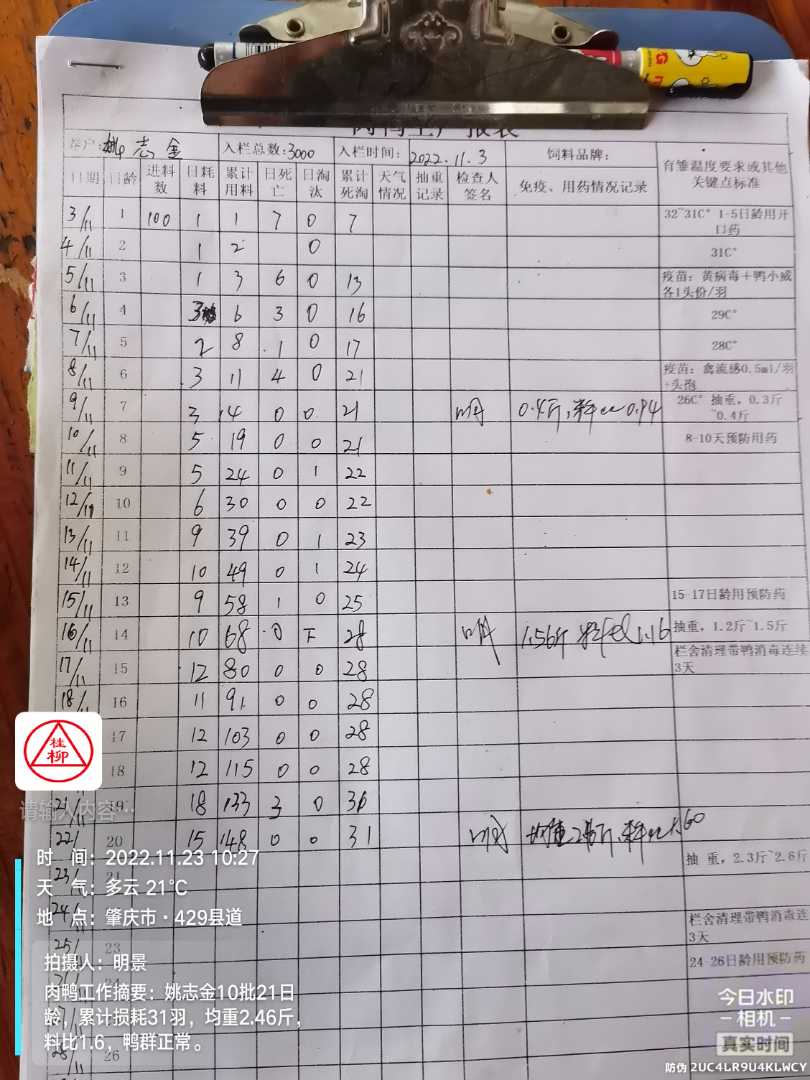 肉鸭生产报表
客户: 姚志金 入栏总数: 3000 入栏时间: 2022.11.3 饲料品牌: 育雏温度要求或其他关键点标准
日期 日龄 进料数 日耗料 累计用料 日死亡 日淘汰 累计死淘 天气情况 抽重记录 检查人签名 免疫、用药情况记录
3/11 1 100 1 1 7 0 7 32~31C° 1-5日龄用开口药
4/11 2 1 2 0 31C°
5/11 3 1 3 6 0 13 疫苗: 黄病毒+鸭小威各1头份/羽
6/11 4 3 6 3 0 16 29C°
7/11 5 2 8 1 0 17 28C°
8/11 6 3 11 4 0 21 疫苗: 禽流感0.5ml/羽+头孢
9/11 7 3 14 0 0 21 明 0.4斤, 料比0.94 26C° 抽重, 0.3斤~0.4斤
10/11 8 5 19 0 0 21 8-10天预防用药
11/11 9 5 24 0 1 22
12/11 10 6 30 0 0 22
13/11 11 9 39 0 1 23
14/11 12 10 49 0 1 24
15/11 13 9 58 1 0 25 15-17日龄用预防药
16/11 14 10 68 0 28 明 1.56斤 1.16 抽重, 1.2斤~1.5斤
17/11 15 12 80 0 0 28 栏舍清理带鸭消毒连续3天
18/11 16 11 91 0 0 28
17 12 103 0 0 28
18 12 115 0 0 28
21/11 19 18 133 3 0 31
22/ 20 15 148 0 0 31 明 均重 斤, 料比1.60
23/ 21 抽 重, 2.3斤~2.6斤
24/
25/ 23 栏舍清理带鸭消毒连3天
24-26日龄用预防药
28/11 26
桂柳
请输入内容…
时 间: 2022.11.23 10:27
天 气: 多云 21℃
地 点: 肇庆市·429县道
拍摄人: 明景
肉鸭工作摘要: 姚志金10批21日
龄, 累计损耗31羽, 均重2.46斤,
料比1.6, 鸭群正常。
今日水印
-相机-
真实时间
防伪 2UC4LR9U4KLWCY